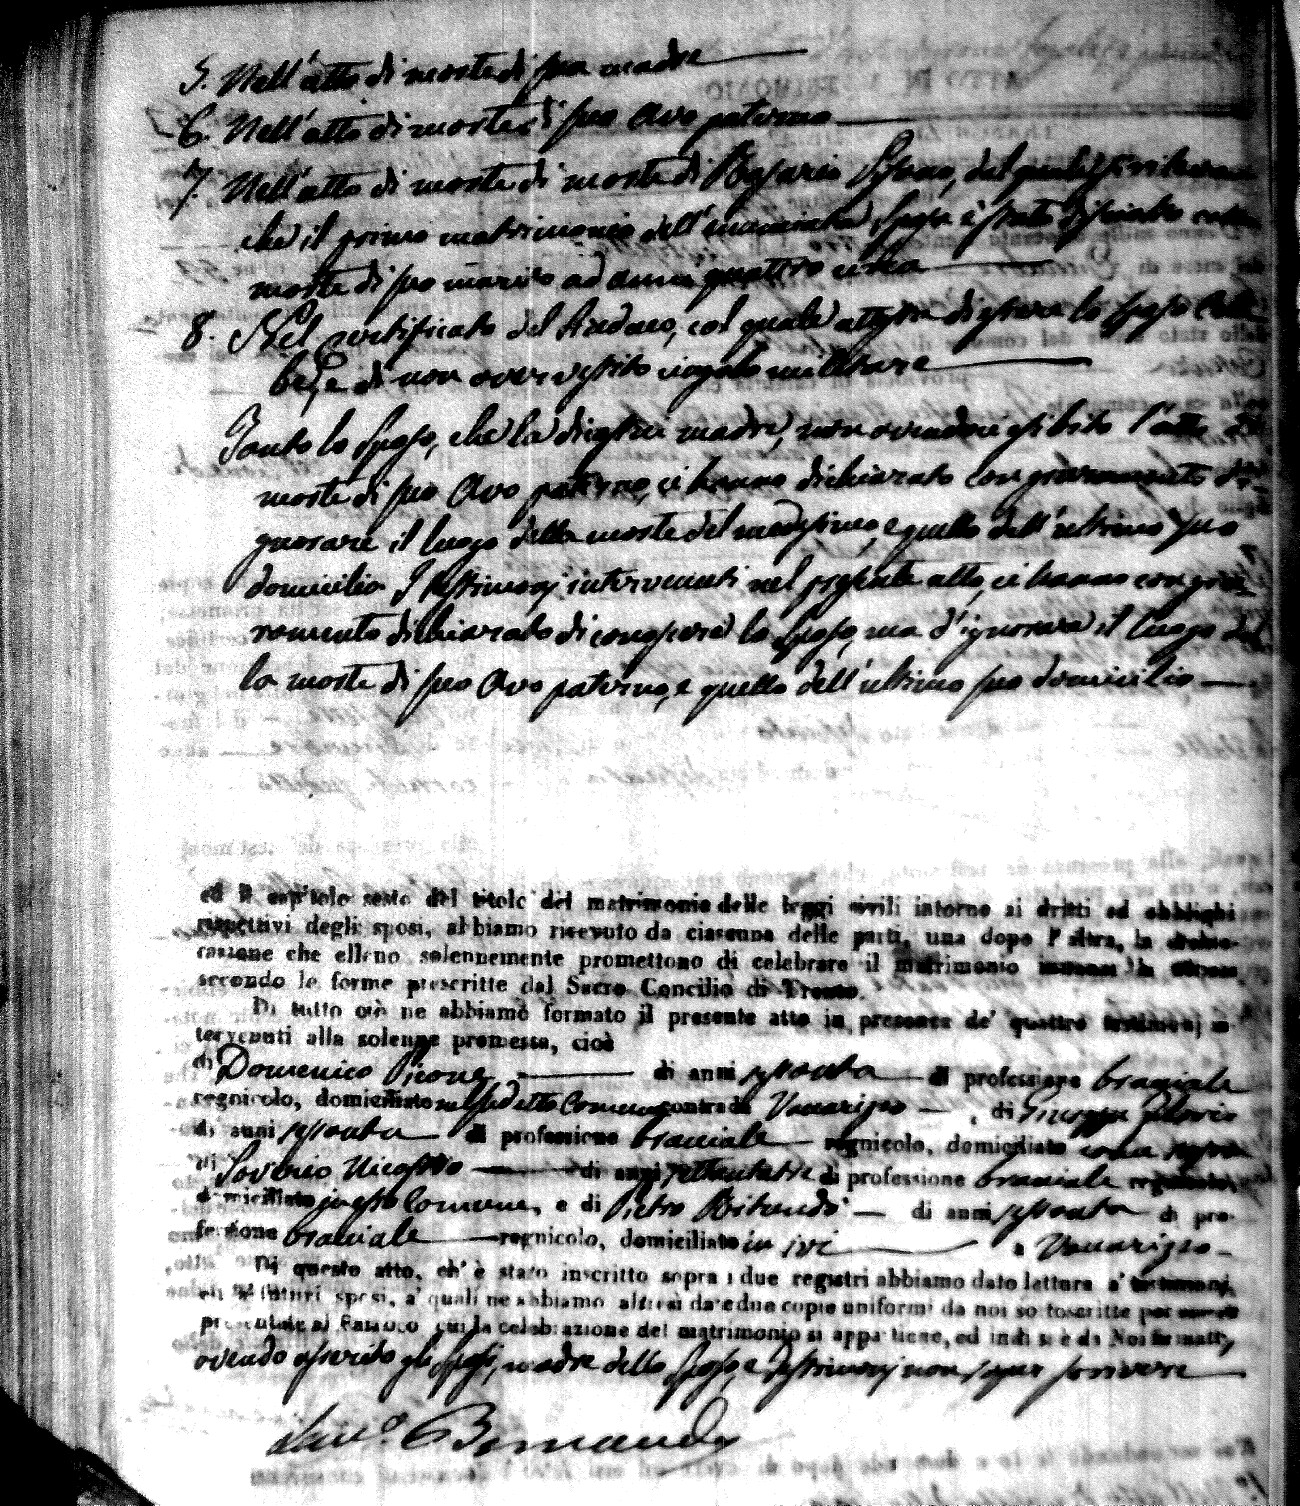 5. Nell'atto di morte di sua madre
6. Nell'atto di morte di suo Avo paterno
7. Nell'atto di morte di morte di Rosario del quale si rileva
che il primo matrimonio dell' Sposa è stato sciolto colla
morte di suo marito ad anni quattro
8. Nel certificato del Sindaco, col quale attesta di essere lo sposo Celi
be, e di non aver
Tanto lo Sposo, che la di lui madre, non avendoci esibito l'atto di
morte di suo Avo paterno, ci hanno dichiarato con giuramento d'i-
gnorare il luogo della morte del medesimo, e quello dell'ultimo suo
domicilio. I testimonj intervenuti nel presente atto, ci hanno con giu-
ramento dichiarato di conoscere lo Sposo, ma d'ignorare il luogo del
la morte di suo Avo paterno, e quello dell'ultimo suo domicilio
ed il capitolo sesto del titolo del matrimonio delle leggi civili intorno ai dritti ed obblighi
rispettivi degli sposi, abbiamo ricevuto da ciascuna delle parti, una dopo l'altra, la dichia-
razione che elleno solennemente promettono di celebrare il matrimonio innanzi la Chiesa
secondo le forme prescritte dal Sacro Concilio di Trento.
Di tutto ciò ne abbiamo formato il presente atto in presenza de' quattro testimonj in-
tervenuti alla solenne promessa, cioè
di Domenico Picone di anni sessanta di professione bracciale
regnicolo, domiciliato nel sudetto Comune contrada di Giuseppe
di anni sessanta di professione bracciale regnicolo, domiciliato come sopra
di Saverio Nicastro di anni settantatre di professione bracciale regnicolo,
domiciliato in questo Comune, e di Pietro di anni sessanta di pro-
fessione bracciale regnicolo, domiciliato in ivi a
Di questo atto, ch' è stato inscritto sopra i due registri abbiamo dato lettura a' testimonj,
ed ai futuri sposi, a' quali ne abbiamo altresì date due copie uniformi da noi sottoscritte per essere
presentate al Parroco cui la celebrazione del matrimonio si appartiene, ed indi si è da Noi firmato,
avendo asserito gli Sposi, madre dello Sposo, e Testimonj non saper scrivere